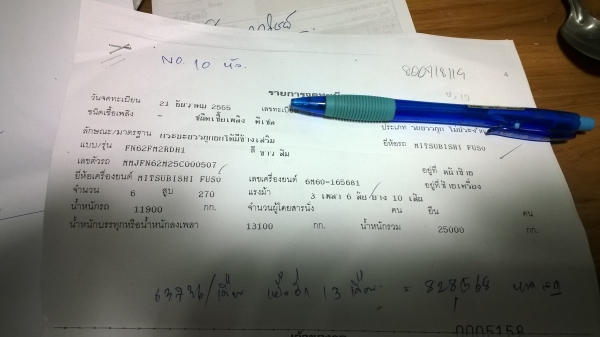 NO. 10 หัว
4
รายการจดทะเบียน
วันจดทะเบียน 21 ธันวาคม 2565 เลขทะเบียน
ชนิดเชื้อเพลิง - ชนิดเชื้อเพลิง ดีเซล ประเภท
ลักษณะ/มาตรฐาน กระบะบรรทุกยกได้มีข้างเสริม
แบบ/รุ่น FN62FM2RDH1 สี ขาว ส้ม ยี่ห้อรถ MITSUBISHI FUSO
เลขตัวรถ MMJFN62M25C000507 อยู่ที่ หน้าซ้าย
ยี่ห้อเครื่องยนต์ MITSUBISHI FUSO เลขเครื่องยนต์ 6M60-165681 อยู่ที่ ซ้ายเครื่อง
จำนวน 6 สูบ 270 แรงม้า 3 เพลา 6 ล้อ ยาง 10 เส้น
น้ำหนักรถ 11900 กก. จำนวนผู้โดยสารนั่ง คน ยืน คน
น้ำหนักบรรทุกหรือน้ำหนักลงเพลา 13100 กก. น้ำหนักรวม 25000 กก.
63736/เดือน 13 เดือน = 828568
0005158